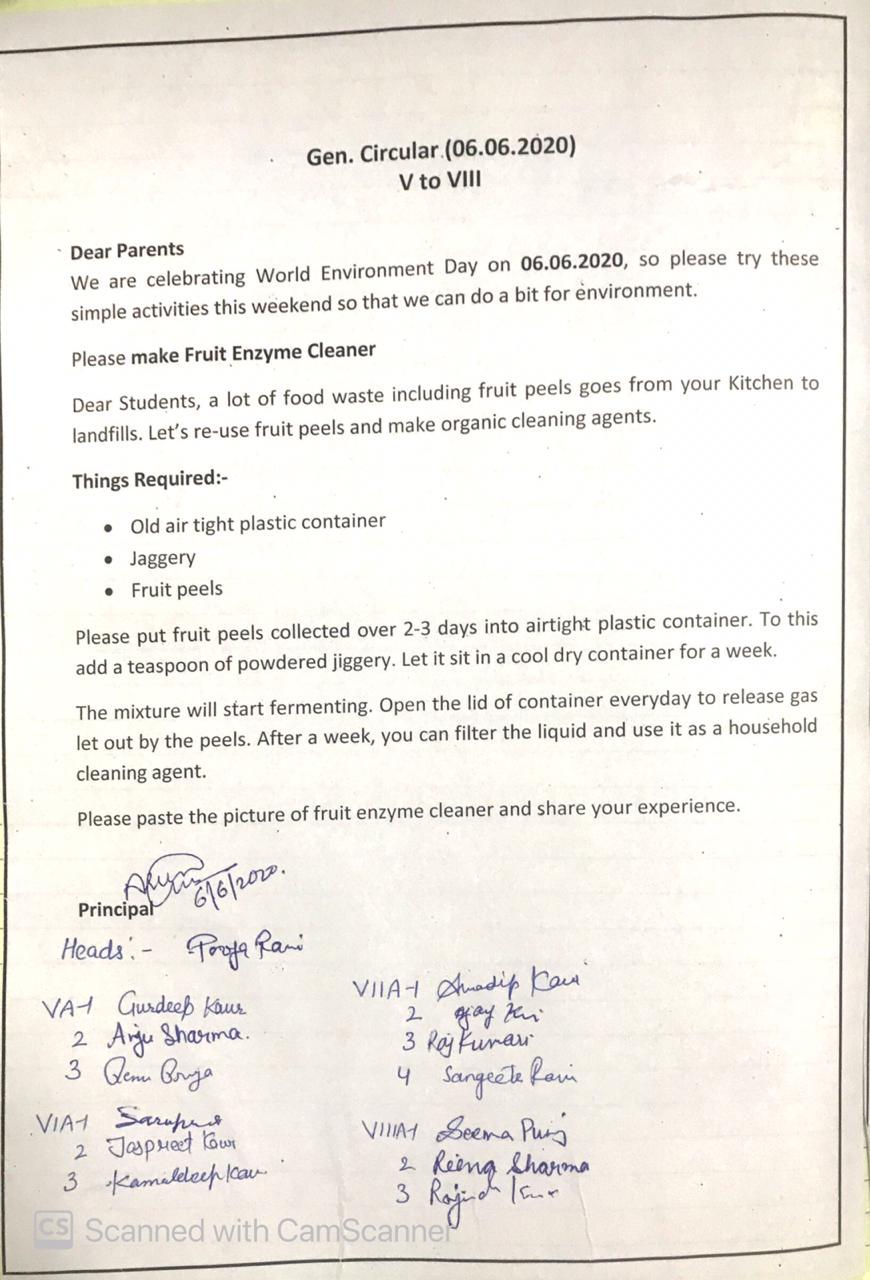 Gen. Circular (06.06.2020)
V to VIII
Dear Parents
We are celebrating World Environment Day on 06.06.2020, so please try these
simple activities this weekend so that we can do a bit for environment.
Please make Fruit Enzyme Cleaner
Dear Students, a lot of food waste including fruit peels goes from your Kitchen to
landfills. Let's re-use fruit peels and make organic cleaning agents.
Things Required:-
• Old air tight plastic container
• Jaggery
• Fruit peels
Please put fruit peels collected over 2-3 days into airtight plastic container. To this
add a teaspoon of powdered jiggery. Let it sit in a cool dry container for a week.
The mixture will start fermenting. Open the lid of container everyday to release gas
let out by the peels. After a week, you can filter the liquid and use it as a household
cleaning agent.
Please paste the picture of fruit enzyme cleaner and share your experience.
6/6/2020.
Principal
Heads:- Pooja Rani
VA-1 Gurdeep Kaur
2 Anju Sharma.
3 Renu
VIA-1
2 Jaspreet Kaur
3 Kamaldeep Kaur
VIIA-1 Kaur
2
3 Raj Kumari
4 Sangeeta Rani
VIIIA-1 Seema Puri
2 Reena Sharma
3
CS Scanned with CamScanner